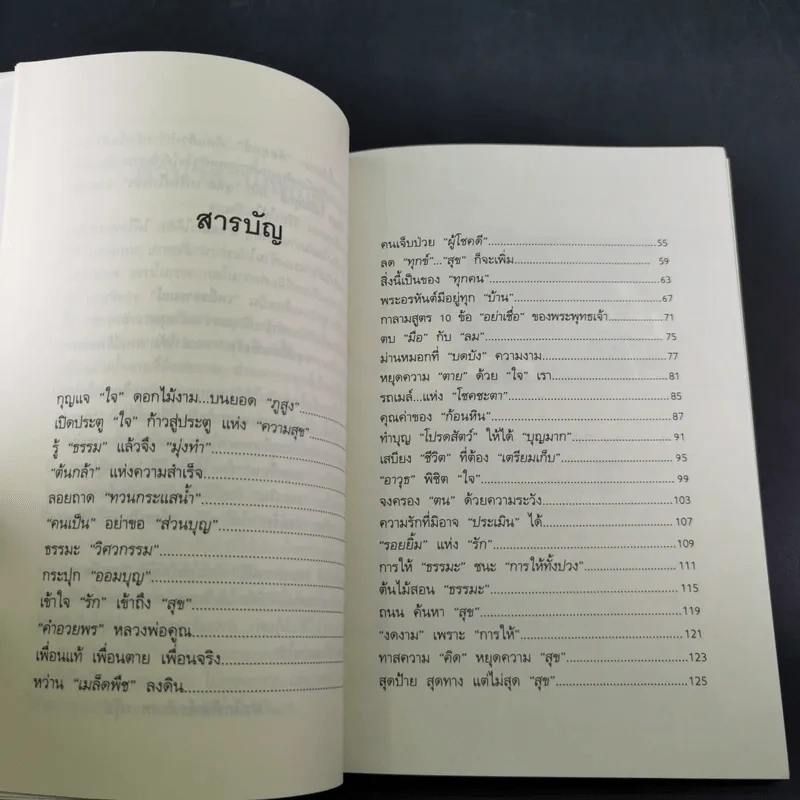 สารบัญ
กุญแจ "ใจ" ดอกไม้งาม...บนยอด "ภูสูง"
เปิดประตู "ใจ" ก้าวสู่ประตู แห่ง "ความสุข"
รู้ "ธรรม" แล้วจึง "มุ่งทำ"
"ต้นกล้า" แห่งความสำเร็จ
ลอยถาด "ทวนกระแสน้ำ"
"คนเป็น" อย่าขอ "ส่วนบุญ"
ธรรมะ "วิศวกรรม"
กระปุก "ออมบุญ"
เข้าใจ "รัก" เข้าถึง "สุข"
"คำอวยพร" หลวงพ่อคูณ
เพื่อนแท้ เพื่อนตาย เพื่อนจริง
หว่าน "เมล็ดพืช" ลงดิน
คนเจ็บป่วย "ผู้โชคดี" 55
ลด "ทุกข์"..."สุข" ก็จะเพิ่ม 59
สิ่งนี้เป็นของ "ทุกคน" 63
พระอรหันต์มีอยู่ทุก "บ้าน" 67
กาลามสูตร 10 ข้อ "อย่าเชื่อ" ของพระพุทธเจ้า 71
ตบ "มือ" กับ "ลม" 75
ม่านหมอกที่ "บดบัง" ความงาม 77
หยุดความ "ตาย" ด้วย "ใจ" เรา 81
รถเมล์...แห่ง "โชคชะตา" 85
คุณค่าของ "ก้อนหิน" 87
ทำบุญ "โปรดสัตว์" ให้ได้ "บุญมาก" 91
เสบียง "ชีวิต" ที่ต้อง "เตรียมเก็บ" 95
"อาวุธ" พิชิต "ใจ" 99
จงครอง "ตน" ด้วยความระวัง 103
ความรักที่มีอาจ "ประเมิน" ได้ 107
"รอยยิ้ม" แห่ง "รัก" 109
การให้ "ธรรมะ" ชนะ "การให้ทั้งปวง" 111
ต้นไม้สอน "ธรรมะ" 115
ถนน ค้นหา "สุข" 119
"งดงาม" เพราะ "การให้" 121
ทาสความ "คิด" หยุดความ "สุข" 123
สุดป้าย สุดทาง แต่ไม่สุด "สุข" 125